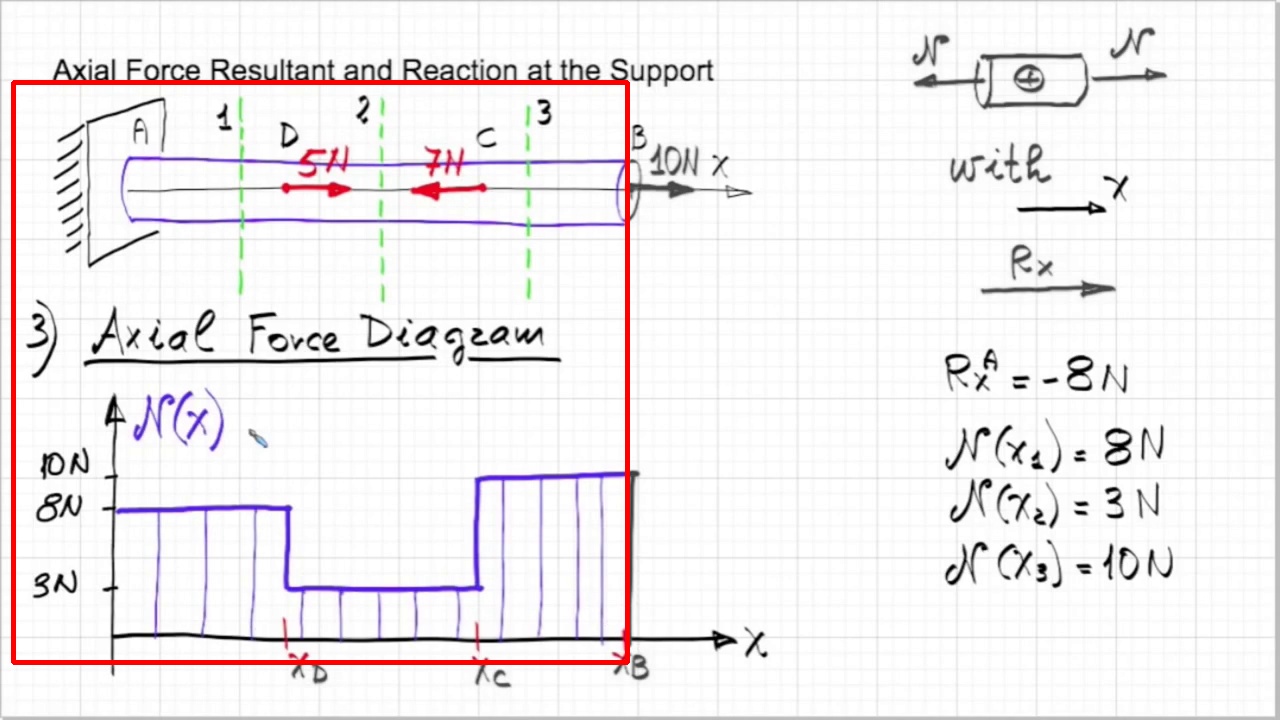 Axial Force Resultant and Reaction at the Support
N N
with
x
Rx
A 1 D 2 C 3 B
5N 7N 10N x
3) Axial Force Diagram
N(x)
10N
8N
3N
x
xD xC xB
RxA = -8N
N(x1) = 8N
N(x2) = 3N
N(x3) = 10N